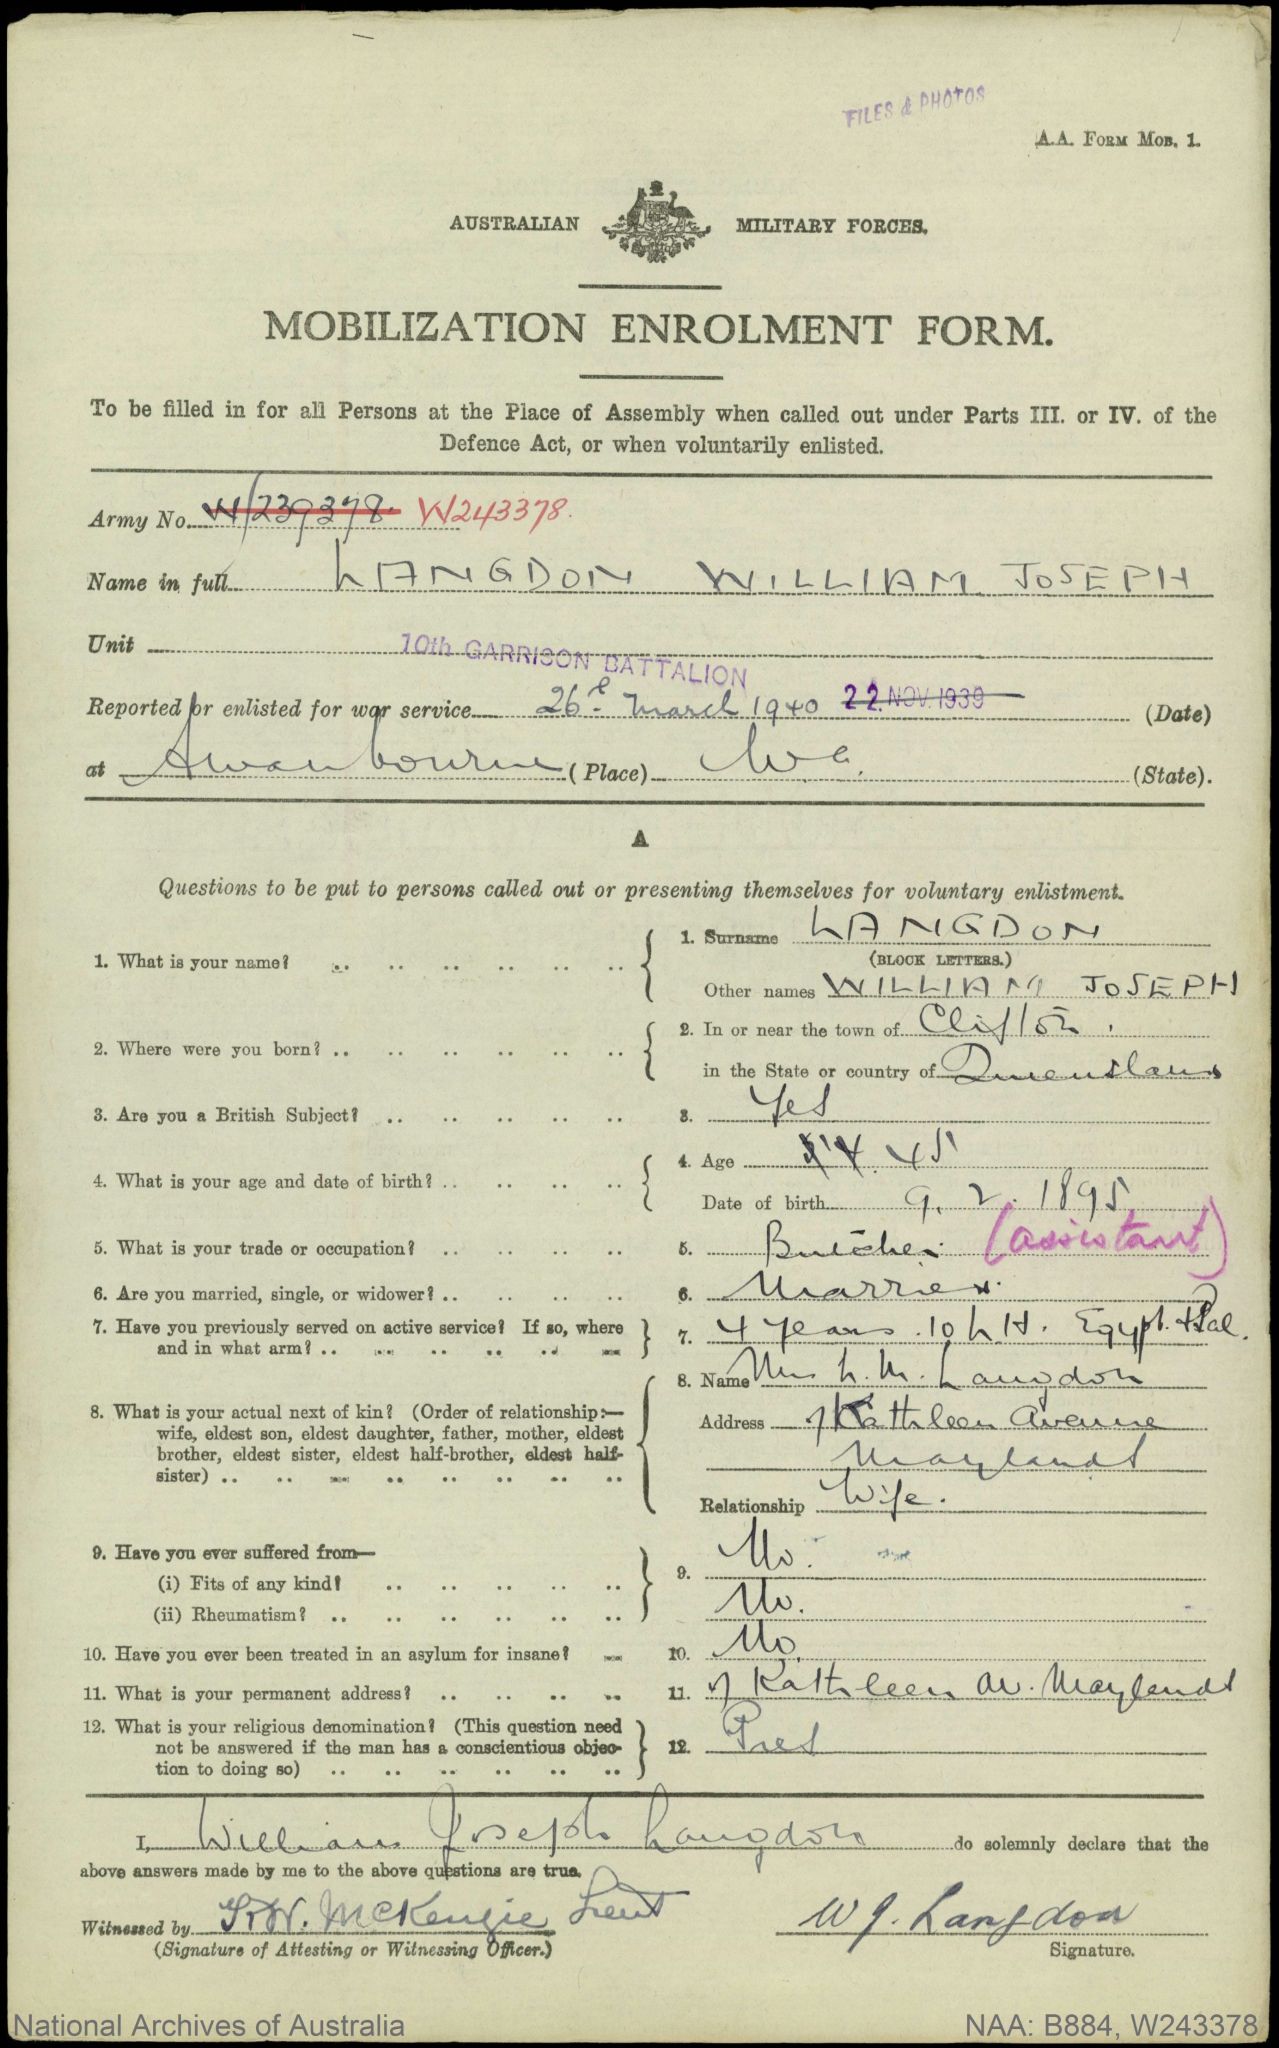 FILES & PHOTOS
A.A. FORM MOB. 1.
AUSTRALIAN MILITARY FORCES.
MOBILIZATION ENROLMENT FORM.
To be filled in for all Persons at the Place of Assembly when called out under Parts III. or IV. of the
Defence Act, or when voluntarily enlisted.
Army No. W/239378 W243378.
Name in full LANGDON WILLIAM JOSEPH
Unit 10th GARRISON BATTALION
Reported or enlisted for war service 26th March 1940 22 NOV. 1939 (Date)
at Swanbourne (Place) W.A. (State).
A
Questions to be put to persons called out or presenting themselves for voluntary enlistment.
1. What is your name? 1. Surname LANGDON
(BLOCK LETTERS.)
Other names WILLIAM JOSEPH
2. Where were you born? 2. In or near the town of Clifton.
in the State or country of Queensland
3. Are you a British Subject? 3. Yes
4. What is your age and date of birth? 4. Age 44. 45
Date of birth 9. 2. 1895
5. What is your trade or occupation? 5. Butcher (assistant)
6. Are you married, single, or widower? 6. Married.
7. Have you previously served on active service? If so, where
and in what arm? 7. 4 years. 10 L H. Egypt & Pal.
8. What is your actual next of kin? (Order of relationship:—
wife, eldest son, eldest daughter, father, mother, eldest
brother, eldest sister, eldest half-brother, eldest half-
sister)
8. Name Mrs L. M. Langdon
Address 7 Kathleen Avenue
Maylands
Relationship Wife.
9. Have you ever suffered from—
(i) Fits of any kind? 9. No.
(ii) Rheumatism? No.
10. Have you ever been treated in an asylum for insane? 10. No
11. What is your permanent address? 11. 7 Kathleen Av. Maylands
12. What is your religious denomination? (This question need
not be answered if the man has a conscientious objec-
tion to doing so) 12. Pres
I, William Joseph Langdon do solemnly declare that the
above answers made by me to the above questions are true.
Witnessed by McKenzie Lieut W J. Langdon
(Signature of Attesting or Witnessing Officer.) Signature.
National Archives of Australia NAA: B884, W243378